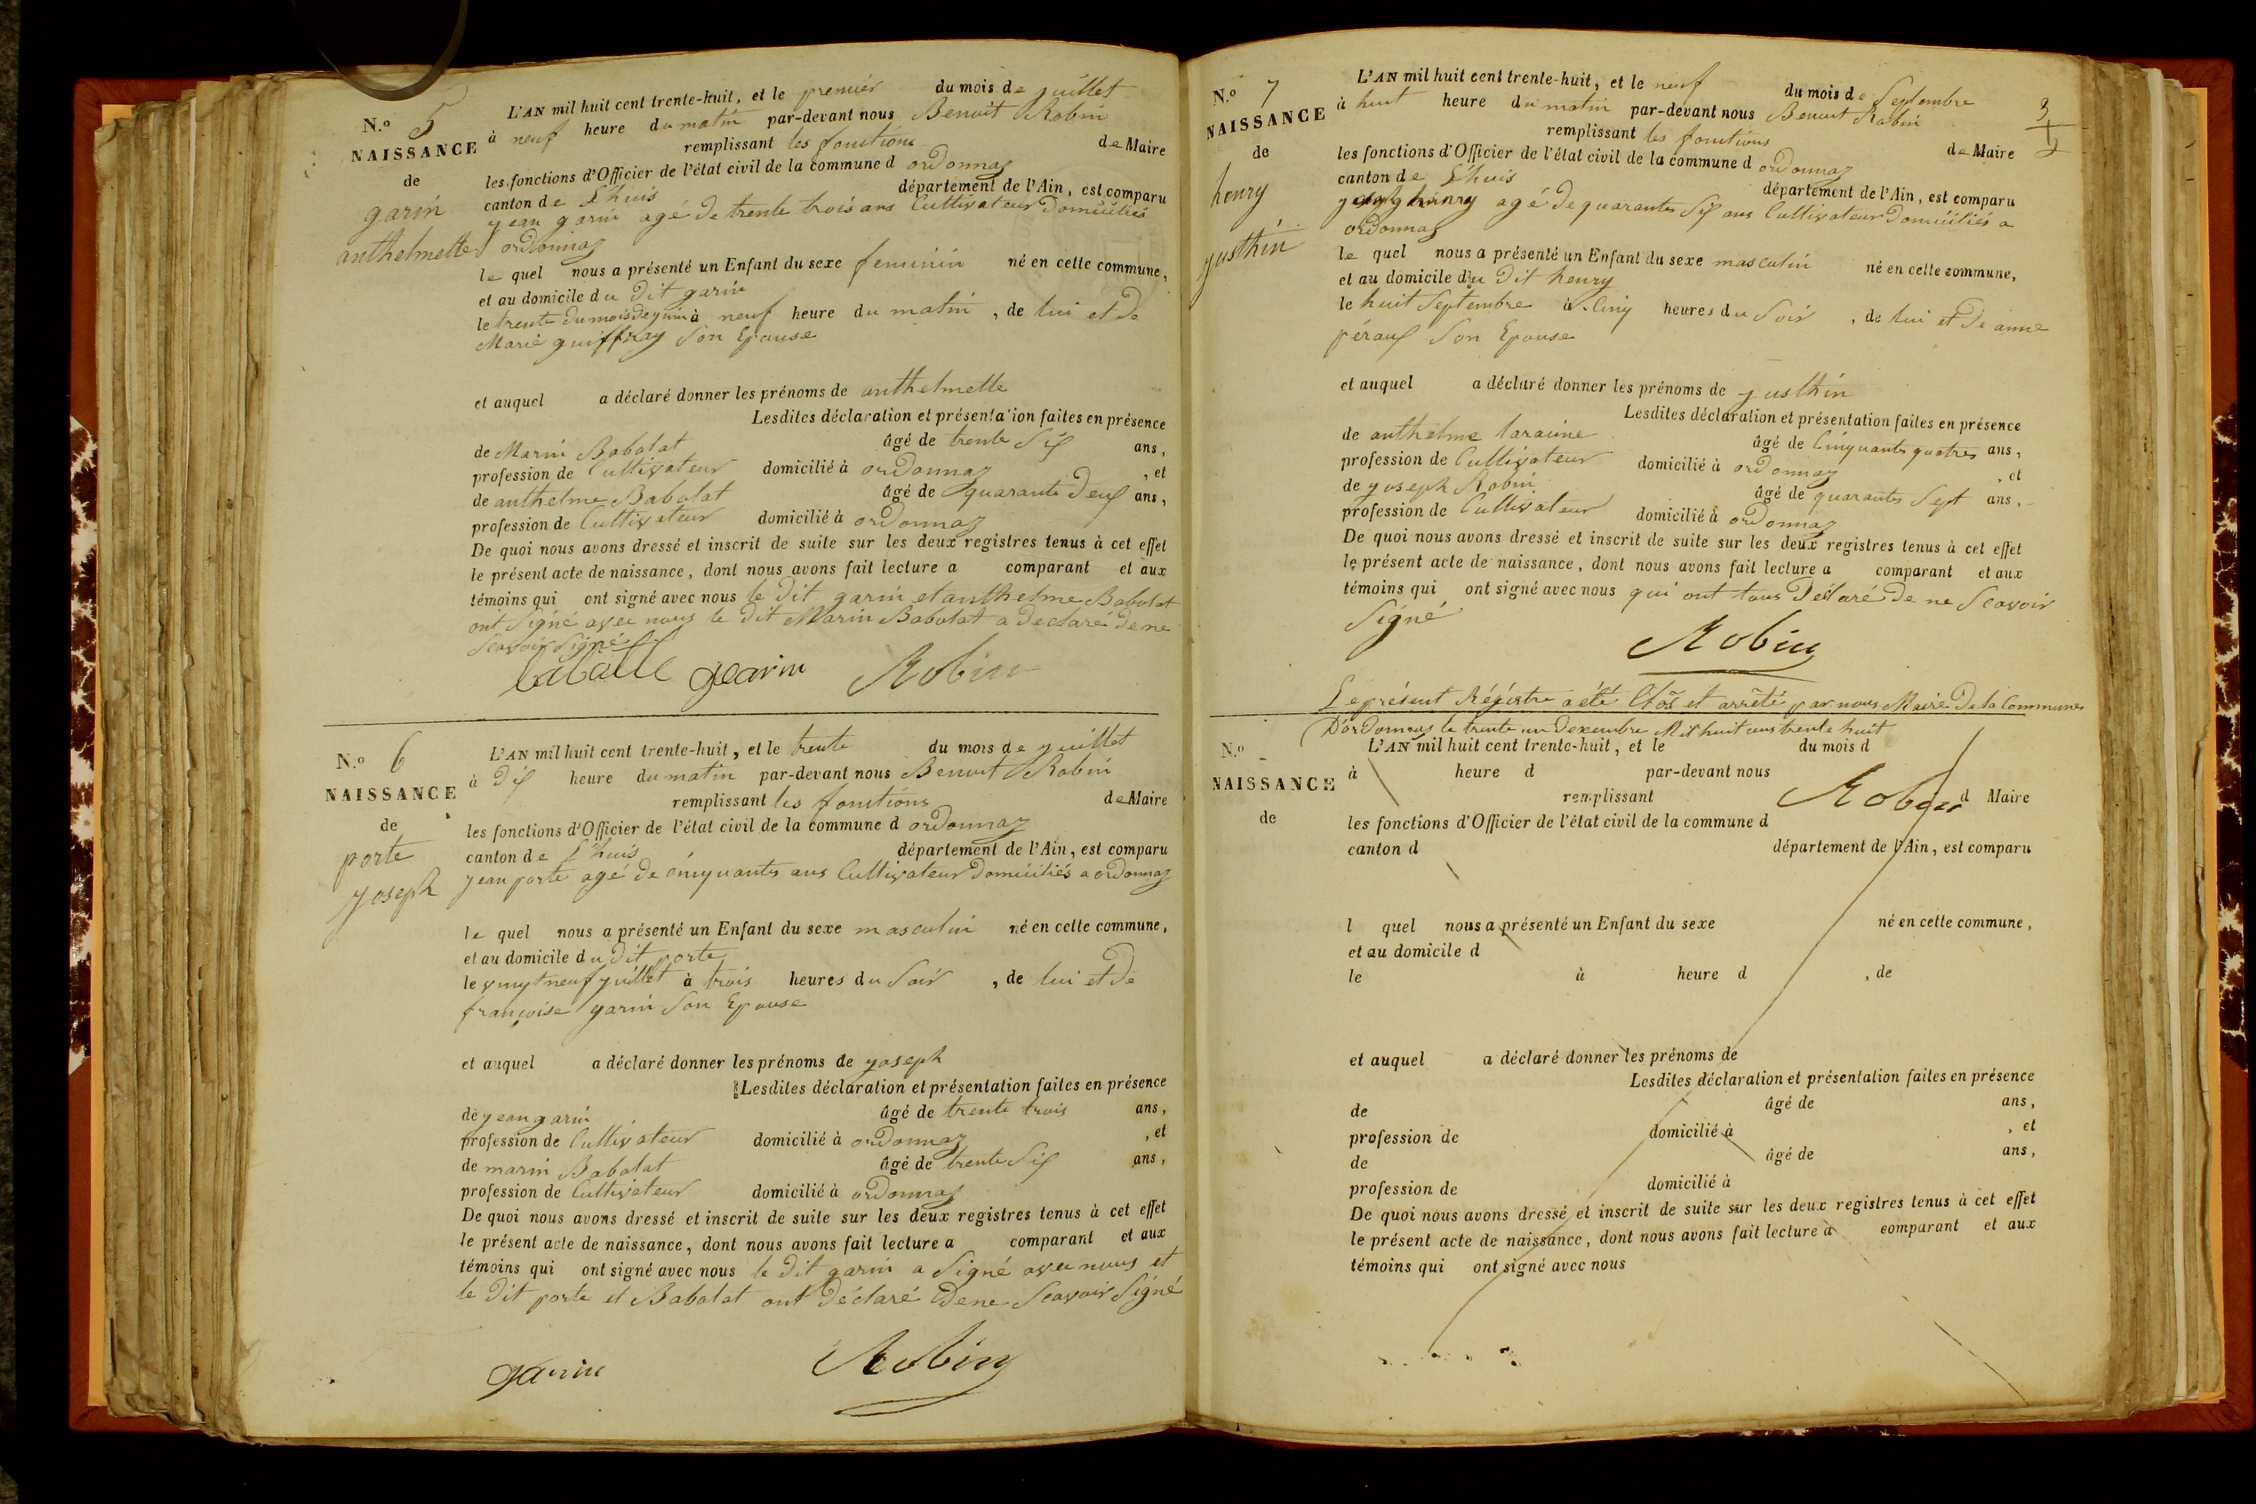 N.o 5
NAISSANCE
de
garin
anthelmette
L'AN mil huit cent trente-huit, et le premier du mois de juillet
à neuf heure du matin par-devant nous Benoit Robin
remplissant les fonctions de Maire
les fonctions d'Officier de l'état civil de la commune d ordonnaz
canton de L'huis département de l'Ain, est comparu
jean garin agé de trente trois ans Cultivateur Domiciliés
a ordonnaz
le quel nous a présenté un Enfant du sexe feminin né en cette commune,
et au domicile du Dit garin
le trente du mois de juin à neuf heure du matin, de lui et De
Marie guiffray Son Epouse
et auquel a déclaré donner les prénoms de anthelmette
Lesdites déclaration et présentation faites en présence
de Marin Babolat âgé de trente Six ans,
profession de Cultivateur domicilié à ordonnaz, et
de anthelme Babolat âgé de quarante Deux ans,
profession de Cultivateur domicilié à ordonnaz
De quoi nous avons dressé et inscrit de suite sur les deux registres tenus à cet effet
le présent acte de naissance, dont nous avons fait lecture a comparant et aux
témoins qui ont signé avec nous le Dit garin et anthelme Babolat
ont Signé avec nous le Dit Marin Babolat a Declaré De ne
Scavoir Signé
garin Robin
N.o 6
NAISSANCE
de
porte
joseph
L'AN mil huit cent trente-huit, et le trente du mois de juillet
à Dix heure du matin par-devant nous Benoit Robin
remplissant les fonctions de Maire
les fonctions d'Officier de l'état civil de la commune d ordonnaz
canton de L'huis département de l'Ain, est comparu
jean porte agé de cinquante ans Cultivateur Domiciliés a ordonnaz
le quel nous a présenté un Enfant du sexe masculin né en cette commune,
et au domicile du Dit porte
le vingt neuf juillet à trois heures du Soir, de lui et De
françoise garin Son Epouse
et auquel a déclaré donner les prénoms de joseph
Lesdites déclaration et présentation faites en présence
de jean garin âgé de trente trois ans,
profession de Cultivateur domicilié à ordonnaz, et
de marin Babolat âgé de trente Six ans,
profession de Cultivateur domicilié à ordonnaz
De quoi nous avons dressé et inscrit de suite sur les deux registres tenus à cet effet
le présent acte de naissance, dont nous avons fait lecture a comparant et aux
témoins qui ont signé avec nous le Dit garin a Signé avec nous et
le Dit porte et Babolat ont Déclaré De ne Scavoir Signé
garin Robin
N.o 7
NAISSANCE
de
henry
justhin
3
L'AN mil huit cent trente-huit, et le neuf du mois de Septembre
à huit heure du matin par-devant nous Benoit Robin
remplissant les fonctions de Maire
les fonctions d'Officier de l'état civil de la commune d ordonnaz
canton de L'huis département de l'Ain, est comparu
henry agé de quarante Six ans Cultivateur Domiciliés a
ordonnaz
le quel nous a présenté un Enfant du sexe masculin né en cette commune,
et au domicile du Dit henry
le huit Septembre à Cinq heures du Soir, de lui et De anne
péraux Son Epouse
et auquel a déclaré donner les prénoms de justhin
Lesdites déclaration et présentation faites en présence
de anthelme âgé de Cinquante quatres ans,
profession de Cultivateur domicilié à ordonnaz, et
de joseph Robin âgé de quarante Sept ans,
profession de Cultivateur domicilié à ordonnaz
De quoi nous avons dressé et inscrit de suite sur les deux registres tenus à cet effet
le présent acte de naissance, dont nous avons fait lecture a comparant et aux
témoins qui ont signé avec nous qui ont tous Déclaré De ne Scavoir
Signé
Robin
Le présent Régistre a été Clos et arrêté par nous Maire De la Commune
D'ordonnaz le trente un Dexembre Mil huit cens trente huit
N.o
NAISSANCE
de
L'AN mil huit cent trente-huit, et le du mois d
à heure d par-devant nous
Robin
remplissant d Maire
les fonctions d'Officier de l'état civil de la commune d
canton d département de l'Ain, est comparu
l quel nous a présenté un Enfant du sexe né en cette commune,
et au domicile d
le à heure d, de
et auquel a déclaré donner les prénoms de
Lesdites déclaration et présentation faites en présence
de âgé de ans,
profession de domicilié à, et
de âgé de ans,
profession de domicilié à
De quoi nous avons dressé et inscrit de suite sur les deux registres tenus à cet effet
le présent acte de naissance, dont nous avons fait lecture a comparant et aux
témoins qui ont signé avec nous